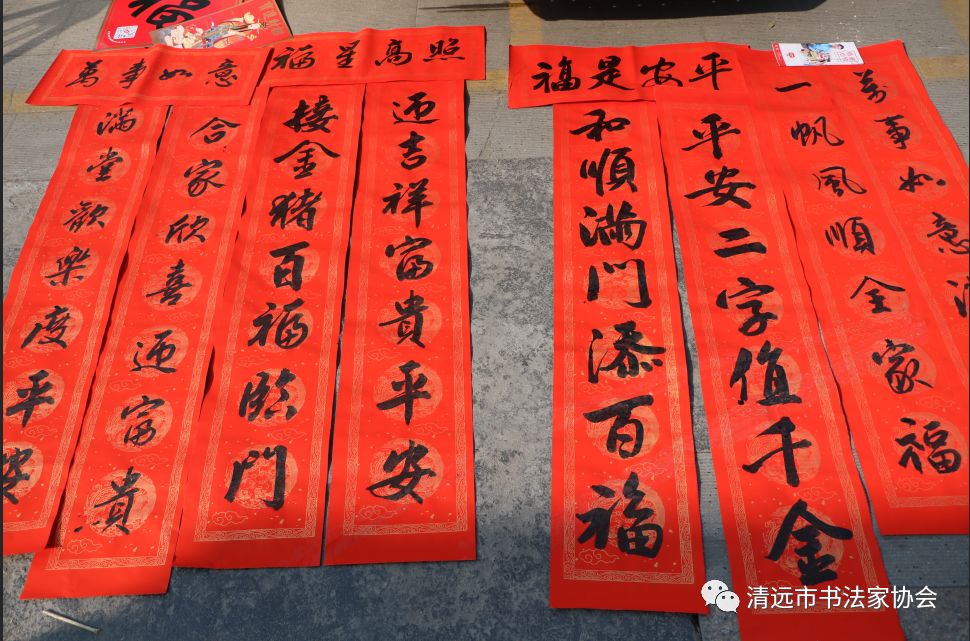 萬事如意
福星高照
平安是福
滿堂歡樂度平安
合家欣喜迎富貴
接金猪百福臨門
迎吉祥富貴平安
和順滿門添百福
平安二字值千金
一帆風順全家福
萬事如意
清远市书法家协会